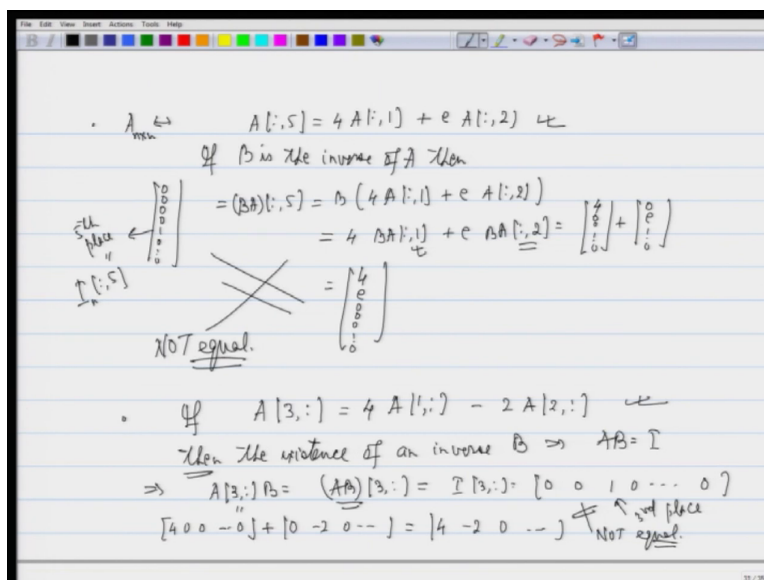 File Edit View Insert Actions Tools Help
B I
. A_{n×n} ↔ A[:,5] = 4 A[:,1] + e A[:,2]
If B is the inverse of A then
[0 0 0 0 1 0 : 0] = (BA)[:,5] = B (4 A[:,1] + e A[:,2])
5th place
= 4 BA[:,1] + e BA[:,2] = [4 0 : 0] + [0 e : 0]
"
I_n[:,5]
= [4 e 0 0 0 : 0]
NOT equal.
. If A[3,:] = 4 A[1,:] - 2 A[2,:]
then the existence of an inverse B ⇒ AB = I
⇒ A[3,:] B = (AB)[3,:] = I[3,:] = [0 0 1 0 ... 0]
" ↑ 3rd place
[4 0 0 - 0] + [0 -2 0 ...] = [4 -2 0 ...] NOT equal.